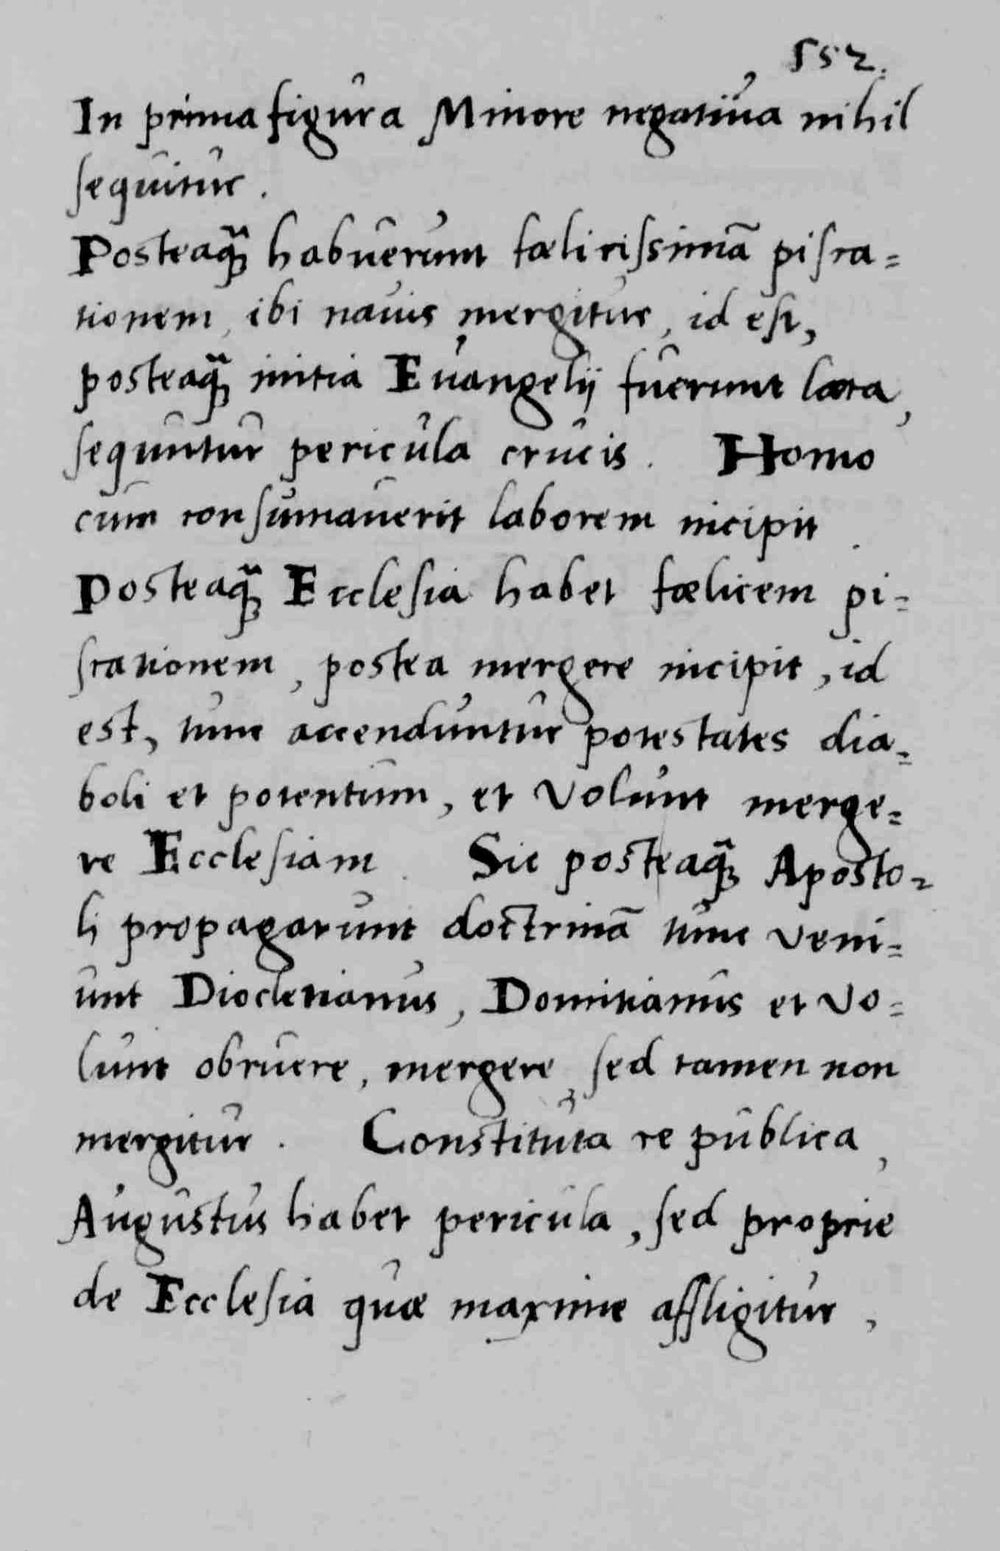 552.
In prima figura Minore negatiua nihil
sequitur.
Posteaq̃ habuerunt fœlicissimã pisca=
tionem, ibi nauis mergitur, id est,
posteaq̃ initia Euangelij fuerunt læta,
sequntur pericula crucis. Homo
cum consumauerit laborem incipit.
Posteaq̃ Ecclesia habet fœlicem pi=
scationem, postea mergere incipit, id
est, tunc accenduntur potestates dia=
boli et potentum, et volunt merge=
re Ecclesiam. Sic posteaq̃ Aposto=
li propagarunt doctrinã tunc veni=
unt Diocletianus, Domitianus et vo=
lunt obruere, mergere, sed tamen non
mergitur. Constituta re publica,
Augustus habet pericula, sed proprie
de Ecclesia quæ maxime affligitur,